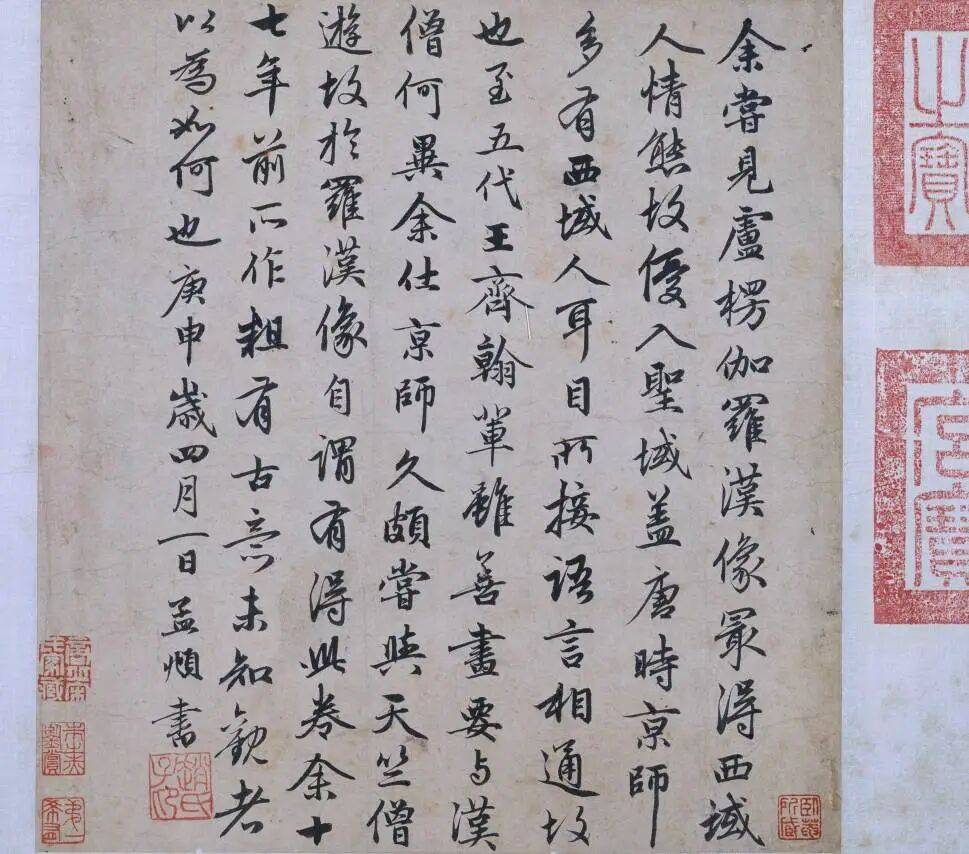 余嘗見盧楞伽羅漢像最得西域
人情態故優入聖域盖唐時京師
多有西域人耳目所接語言相通故
也至五代王齊翰輩雖善畫要与漢
僧何異余仕京師久頗嘗與天竺僧
遊故於羅漢像自謂有得此卷余十
七年前所作粗有古意未知觀者
以為如何也庚申歲四月一日孟頫書
趙氏子昂
臥菴所藏
之寶